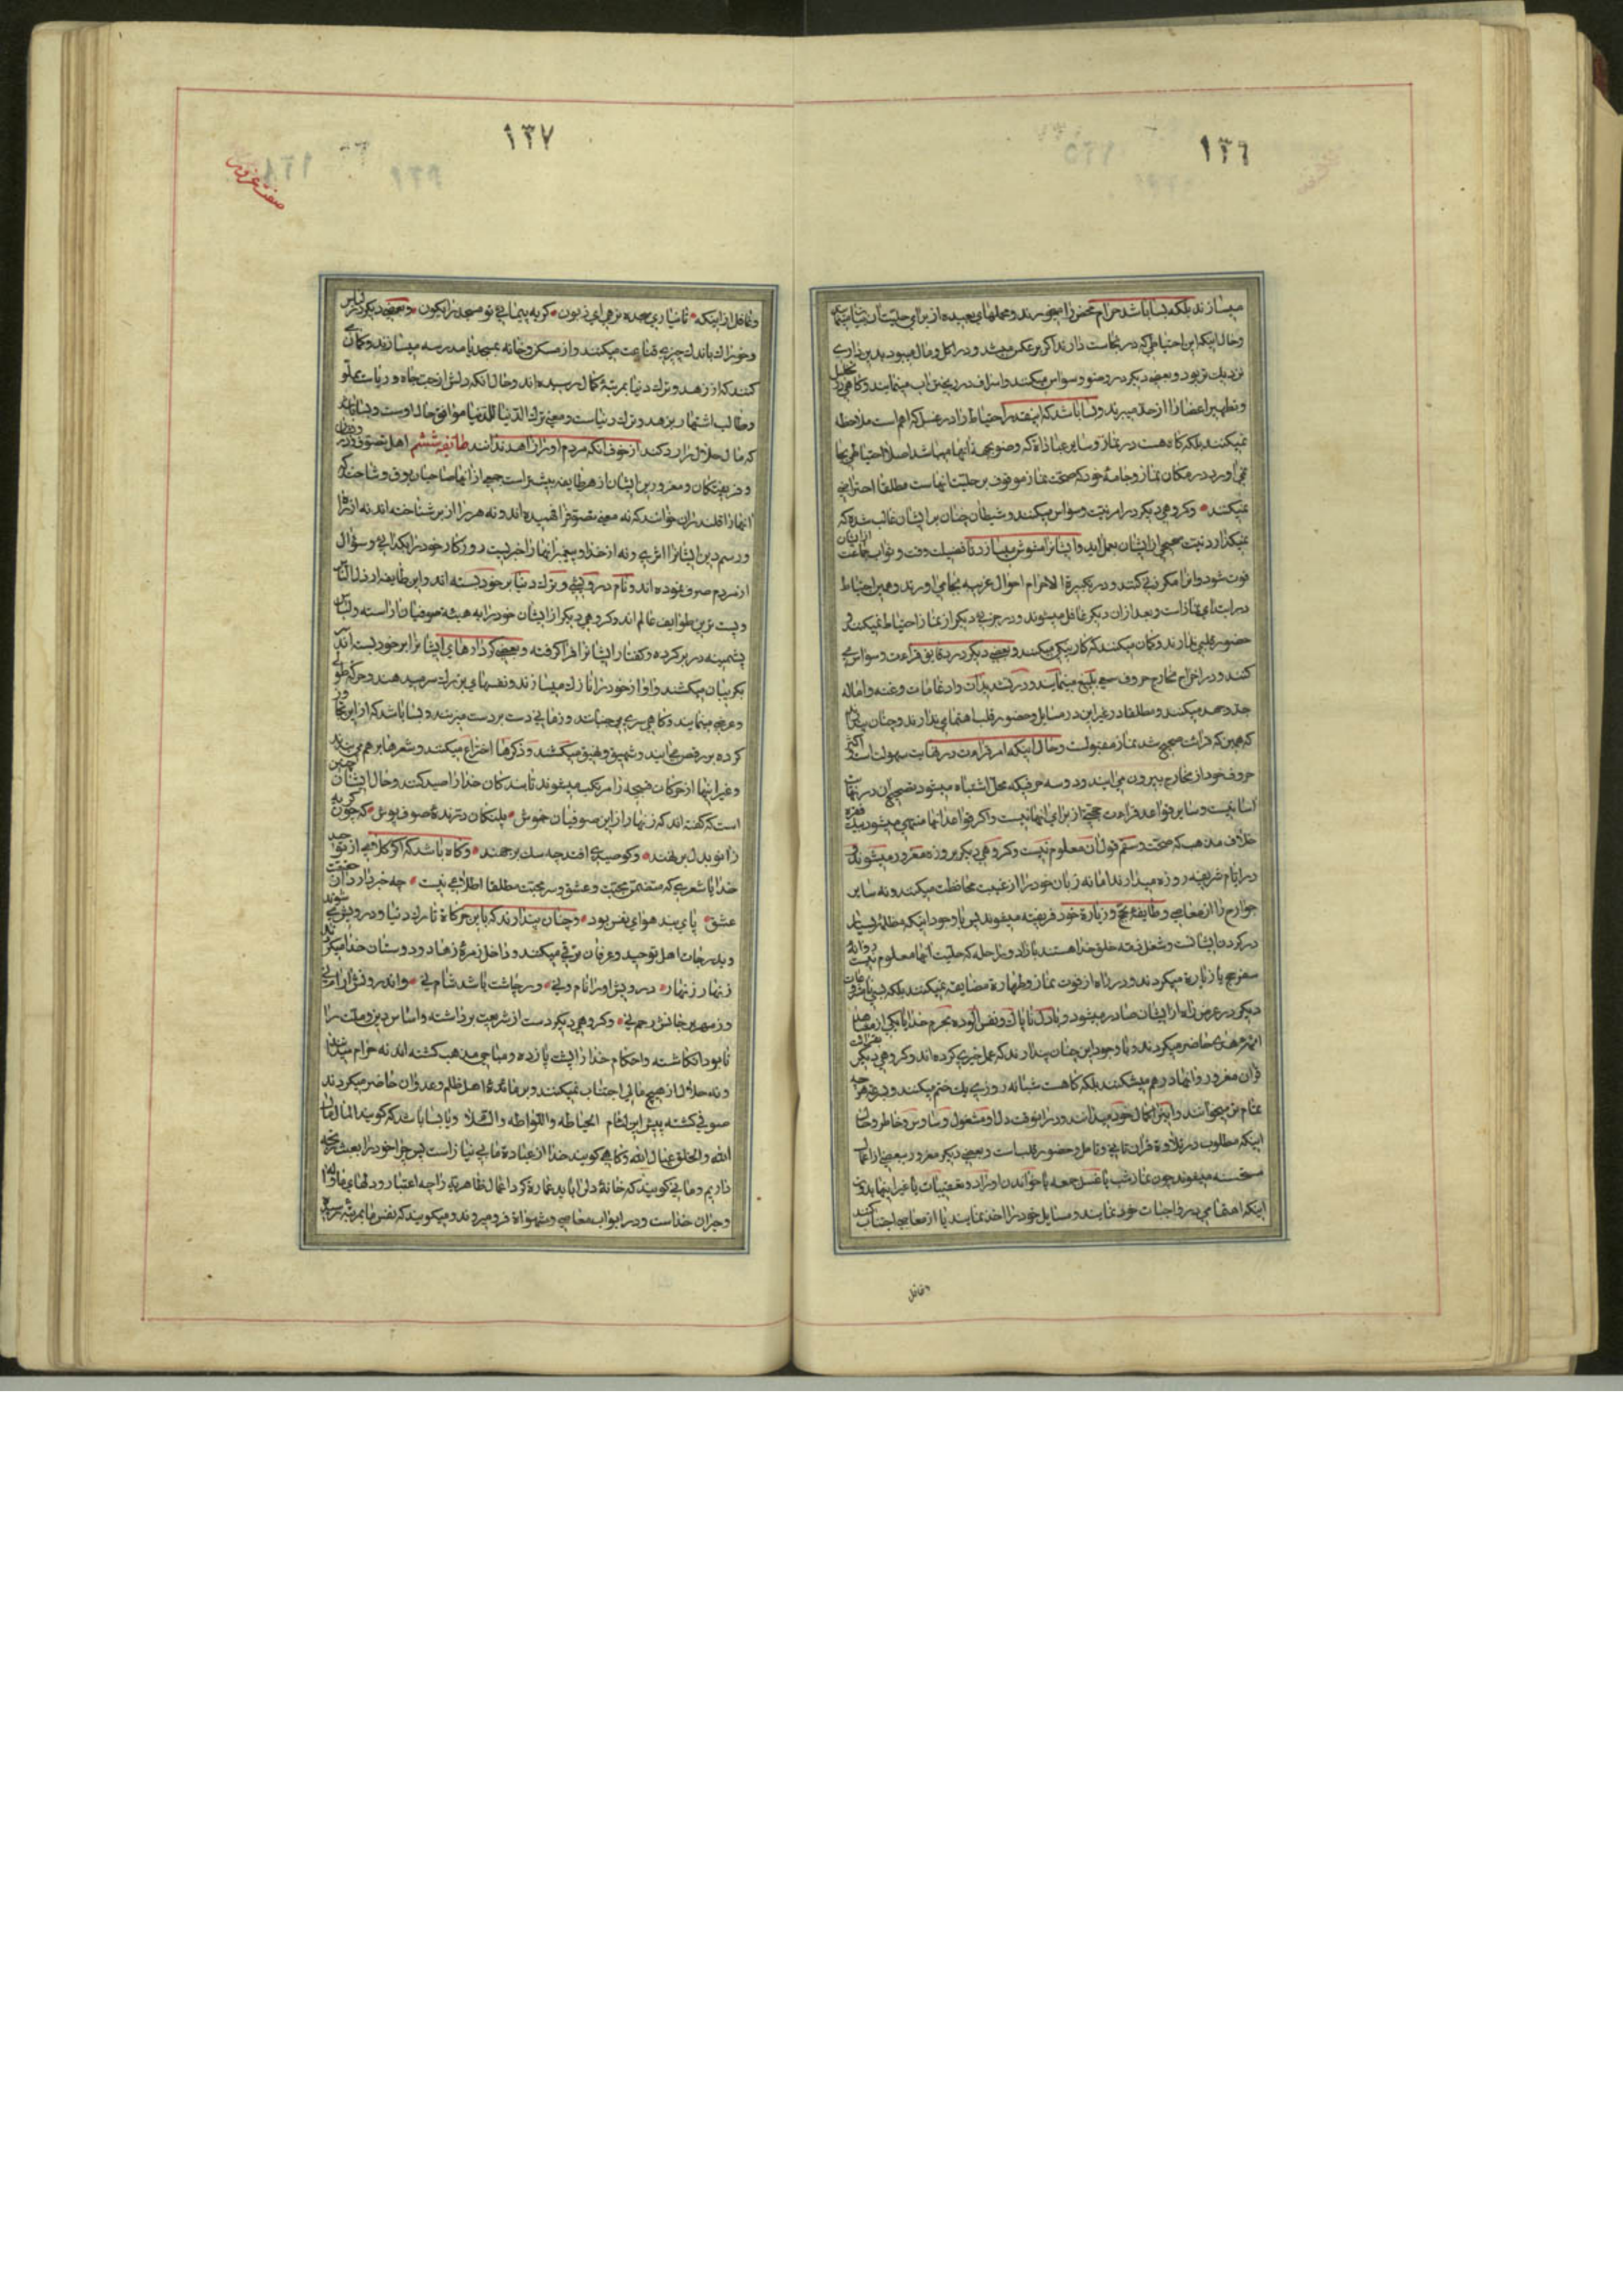 ١٣٦
میسازند بلکه بسا باشد حرام محض را میخورند و محملهای بعیده از برای حلیت آن
و حال اینکه این احتیاطی که در نجاست دارند اگر بر عکس میشد و در اکل و مال میبود بدین داری
نزدیک تر بود و بعضی دیگر در وضو وسواس میکنند و اسراف در ریختن آب مینمایند و گاهی در تخلیل
و تطهیر اعضا را از حد میبرند و بسا باشد که اینقدر احتیاط را در غسل که اهم است ملاحظه
نمیکنند بلکه گاه هست در نماز و سایر عباداة که وضو بجهة آنها مهیا باشد اصلا احتیاطی بجا
نمی آورد در مکان نماز و جامهٔ خود که صحت نماز موقوف بر حلیت آنهاست مطلقا احترازی
نمیکنند وگروهی دیگر در امر نیت وسواس میکنند و شیطان چنان بر ایشان غالب شده که
نمیگذارد نیت صحیحی از ایشان بعمل آید و ایشانرا مشوش میسازد تا فضیلت وقت و ثواب جماعت از ایشان
فوت شود و آنرا مکرر نی کنند و در تکبیرة الاحرام احوال غریبه بجا می آورند و همین احتیاط
در ابتدای نماز است و بعد از آن دیگر غافل میشوند و در جزئی دیگر از نماز احتیاط نمیکنند و
حضور قلبی ندارند و گمان میکنند که کار نیکی میکنند و بعضی دیگر در دقایق قراءت وسواس می
کنند و در اخراج مخارج حروف سعی بلیغ مینمایند و در تشدیدات و ادغامات و غنه و اماله
جد و جهد میکنند و مطلقا در غیر این در مسایل و حضور قلب اهتمامی ندارند و چنان پندارند
که همین که قرائت صحیح شد نماز مقبولست و حال اینکه امر قراءت در نهایت سهولت است و اکثر
حروف خود از مخارج بیرون می آیند و دو سه حرفیکه محل اشتباه میشود تصحیح آن در نهایت
اسانیست و سایر قواعد قراءت حجتی از برای آنها نیست و اگر قواعد آنها منتهی میشود به
خلاف مذهب که صحت و سقم قول آن معلوم نیست و گروهی دیگر بروزه مغرور میشوند و
در ایام شریفه روزه میدارند اما نه زبان خود را از غیبت محافظت میکنند و نه سایر
جوارح را از معاصی و طایفهٔ بحج و زیارة خود فریفته میشوند پس با وجود اینکه مظلمهٔ بسیار
در گردن ایشانست و شغل ذمه خلق خدا هستند با زاد و راحله که حلیت آنها معلوم نیست روانهٔ
سفر حج یا زیارة میگردند و در راه از فوت نماز و طهارة مضایقه نمیکنند بلکه
دیگر در عرض راه از ایشان صادر میشود و با دل ناپاک و نفس آلوده بحرم خدا یا یکی از مشاهد
ائمه هدی حاضر میگردند و با وجود این چنان پندارند که عمل خیری کرده اند و گروهی دیگر بقرائت
قران مغرور و آنها در هم میشکنند بلکه گاهست شبانه روزی یک ختم میکنند
تمام تر میخوانند و این را کمال خود میدانند و در آنوقت دل او مشغول وساوس و خاطر و حال
اینکه مطلوب در تلاوة قران تانی و تامل و حضور قلب است و بعضی دیگر مغرور ببعضی از اعمال
مستحسنه میشوند چون نماز شب یا غسل جمعه یا خواندن اوراد و تعقیبات یا غیر اینها بدون
اینکه اهتمامی در واجبات خود نمایند و مسایل خود را اخذ نمایند یا از معاصی اجتناب کنند
و غافل
١٣٧
صفت غرور
و غافل از اینکه تا نیاری سجده نز هرای زبون کر بپیمائی تو مسجد را بکون و بعضی دیگر در لباس
و خوراک باندک چیزی قناعت میکنند و از مسکن و خانه بمسجد یا مدرسه میسازند و گمان
کنند که از زهد و ترک دنیا بمرتبهٔ کمال رسیده اند و حال آنکه دلش از حب جاه و ریاست مملو
و طالب اشتهار بزهد و ترک دنیاست و معنی ترک الدنیا للدنیا موافق حال اوست و بسا باشد
که مال حلال را رد کند از خوف آنکه مردم او را زاهد ندانند طائفهٔ ششم اهل تصوف
و فریفتگان و مغرورین ایشان از هر طایفه بیشتر است جمعی از آنها صاحبان بوق و شاخند که
آنها را قلندران خوانند که نه معنی تصوف را فهمیده اند و نه هر را از بر شناخته اند نه از راه
و رسم دین ایشانرا اثری و نه از خدا و پیغمبر آنها را خبریست روزگار خود را بگدائی و سؤال
از مردم صرف نموده اند و نام درویشی و ترک دنیا بر خود بسته اند و این طایفه ارذل الناس
و پست ترین طوایف عالم اند و گروهی دیگر از ایشان خود را به هیئت صوفیان آراسته و لباس
پشمینه در بر کرده و گفتار ایشانرا فرا گرفته و بعضی کردارهای ایشانرا بر خود بسته اند
بگریبان میکشند و آواز خود را نازک میسازند و نفسهای بزرگ سر میدهند
و عرض مینمایند و گاهی سری میجنبانند و زمانی دست بر دست میزنند و بسا باشد که از این تجاوز
کرده برقص می آیند و شهیق و نهیق میکشند و ذکرها اختراع میکنند و شعرها بر هم می بندند
و غیر اینها از حرکات قبیحه را مرتکب میشوند تا بندگان خدا را صید کنند و حال ایشان چنین
است که گفته اند که زنهار از این صوفیان خموش پلنگان درندهٔ صوف پوش که چون گربه
زانو بدل بر نهند و گر صیدی افتد چه سگ بر جهند و گاه باشد که اگر کلامی از توحید
خدا یا شعری که متضمن محبت و عشق و سر محبت مطلقا اطلاعی نیست چه خبر دارد از حقیقت
عشق پای بند هوای نفس بود و چنان پندارند که باین حرکاة تارک دنیا و درویش
و بدرجات اهل توحید و عرفان ترقی میکنند و داخل زمرهٔ زهاد و دوستان خدا میگردند
زنهار زنهار درویش او را نام و نی و در چاشت باشد شام نی و اندرونش آرام نی
و زمهر خدا بر جانش رحم نی و گروهی دیگر دست از شریعت برداشته و اساس دین و ملت را
نابود انگاشته و احکام خدا را پشت پا زده و مباحی مذهب گشته اند نه حرام میدانند
و نه حلال از هیچ مالی اجتناب نمیکنند و بر مائدهٔ اهل ظلم و عدوان حاضر میگردند
صوفی گشته پیش این لئام الخیاطه و اللواطه و السلام و یا بسا باشد که گویند المال مال
الله و الخلق عیال الله و گاهی گویند خدا از عبادة ما بی نیاز است پس چرا خود را بعبث رنجه
داریم و گاهی گویند که خانهٔ دل را باید عمارة کرد اعمال ظاهریه را چه اعتبار و دلهای ما واله
و حیران خداست و در ابواب معاصی و شهواة فرو میروند و میگویند که نفس ما بمرتبه رسیده